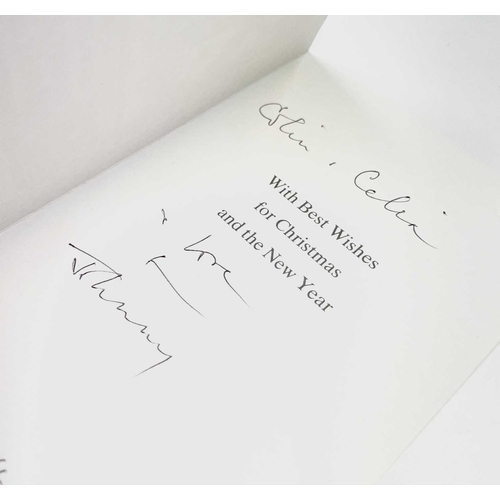 Colin + Celia
With Best Wishes
for Christmas
and the New Year
+ love
Johnny